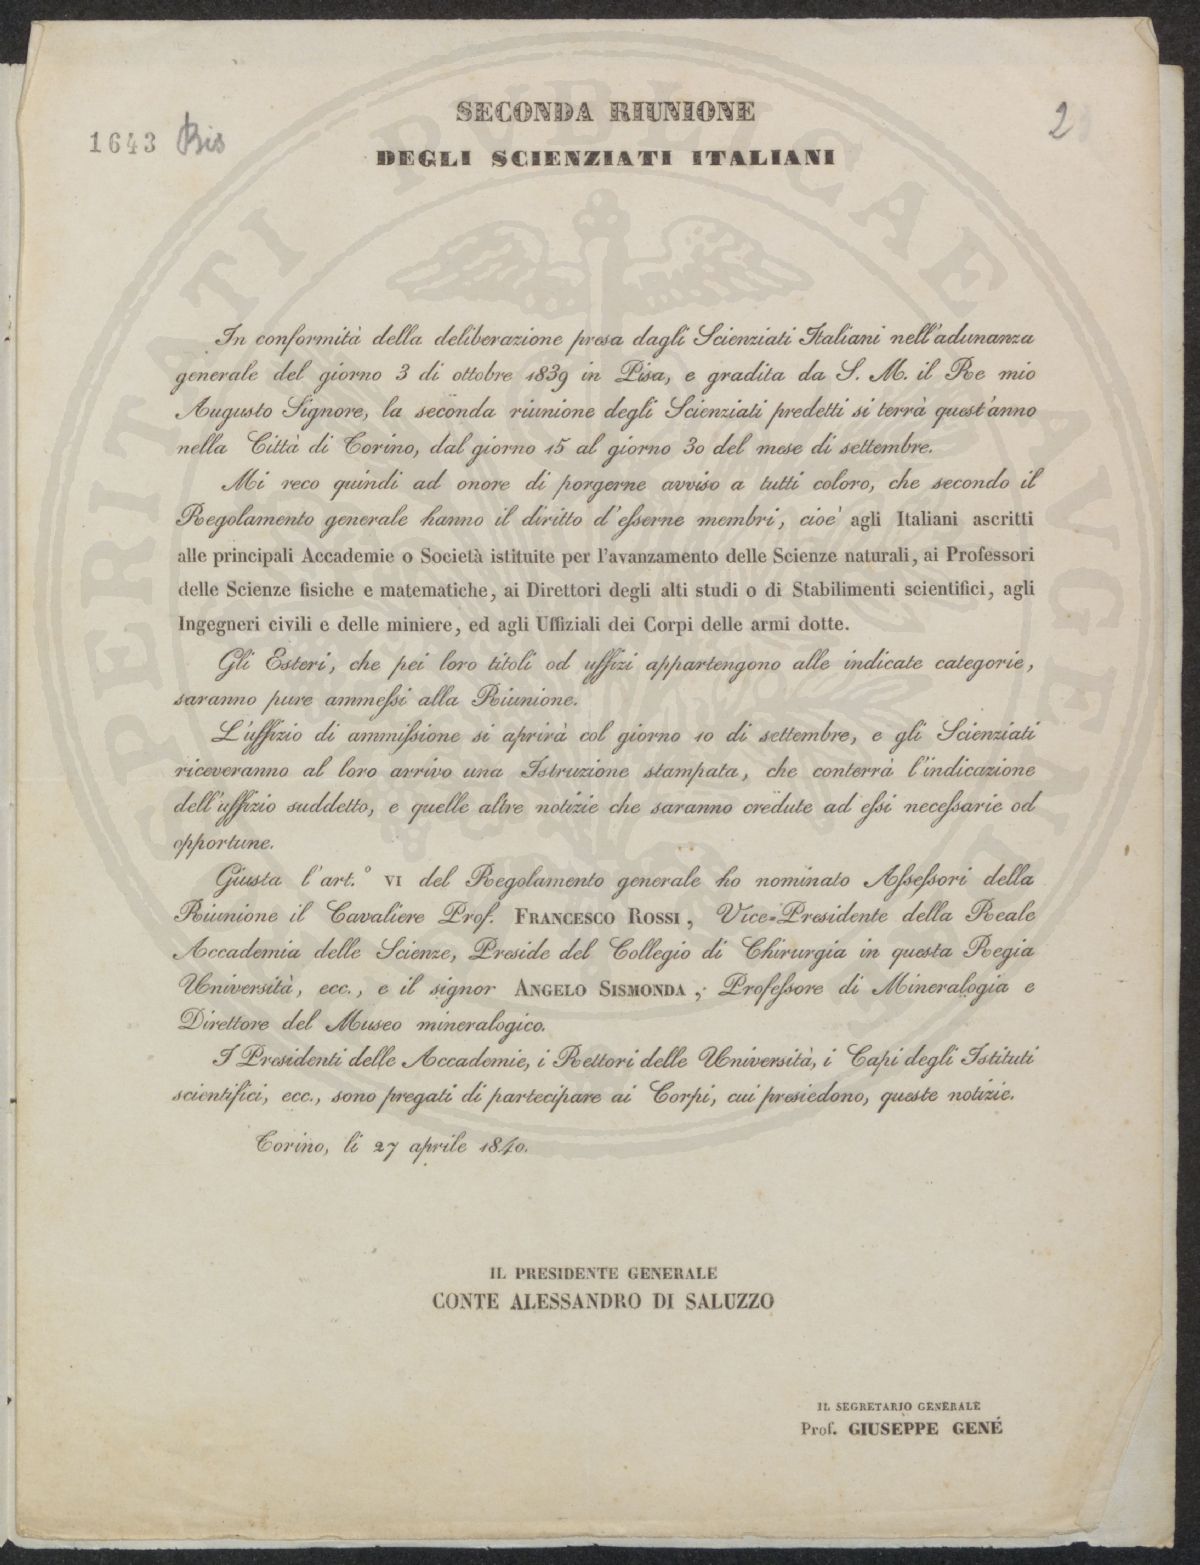 SECONDA RIUNIONE
1643 Bis
2
DEGLI SCIENZIATI ITALIANI
In conformità della deliberazione presa dagli Scienziati Italiani nell'adunanza
generale del giorno 3 di ottobre 1839 in Pisa, e gradita da S. M. il Re mio
Augusto Signore, la seconda riunione degli Scienziati predetti si terrà quest'anno
nella Città di Torino, dal giorno 15 al giorno 30 del mese di settembre.
Mi reco quindi ad onore di porgerne avviso a tutti coloro, che secondo il
Regolamento generale hanno il diritto d'esserne membri, cioè agli Italiani ascritti
alle principali Accademie o Società istituite per l'avanzamento delle Scienze naturali, ai Professori
delle Scienze fisiche e matematiche, ai Direttori degli alti studi o di Stabilimenti scientifici, agli
Ingegneri civili e delle miniere, ed agli Uffiziali dei Corpi delle armi dotte.
Gli Esteri, che pei loro titoli od uffizi appartengono alle indicate categorie,
saranno pure ammessi alla Riunione.
L'uffizio di ammissione si aprirà col giorno 10 di settembre, e gli Scienziati
riceveranno al loro arrivo una Istruzione stampata, che conterrà l'indicazione
dell'uffizio suddetto, e quelle altre notizie che saranno credute ad essi necessarie od
opportune.
Giusta l'art.° VI del Regolamento generale ho nominato Assessori della
Riunione il Cavaliere Prof. FRANCESCO ROSSI, Vice-Presidente della Reale
Accademia delle Scienze, Preside del Collegio di Chirurgia in questa Regia
Università, ecc., e il signor ANGELO SISMONDA, Professore di Mineralogia e
Direttore del Museo mineralogico.
I Presidenti delle Accademie, i Rettori delle Università, i Capi degli Istituti
scientifici, ecc., sono pregati di partecipare ai Corpi, cui presiedono, queste notizie.
Torino, li 27 aprile 1840.
IL PRESIDENTE GENERALE
CONTE ALESSANDRO DI SALUZZO
IL SEGRETARIO GENERALE
Prof. GIUSEPPE GENÉ